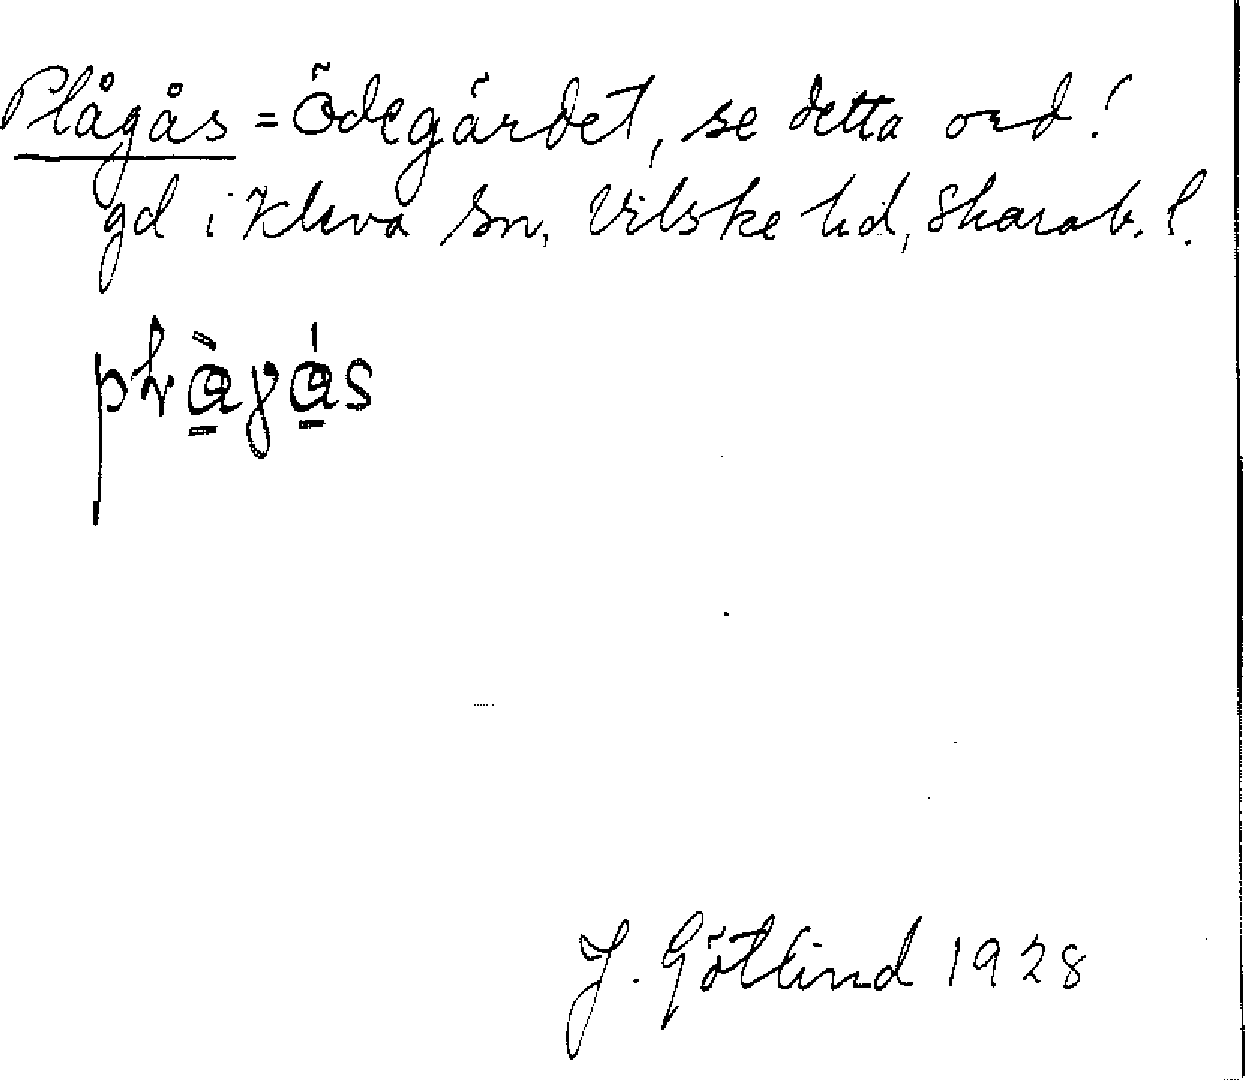 Plågås = Ödegärdet, se detta ord!
gd i Kleva sn, Vilske hd, Skarab. l.
J. Götlind 1928